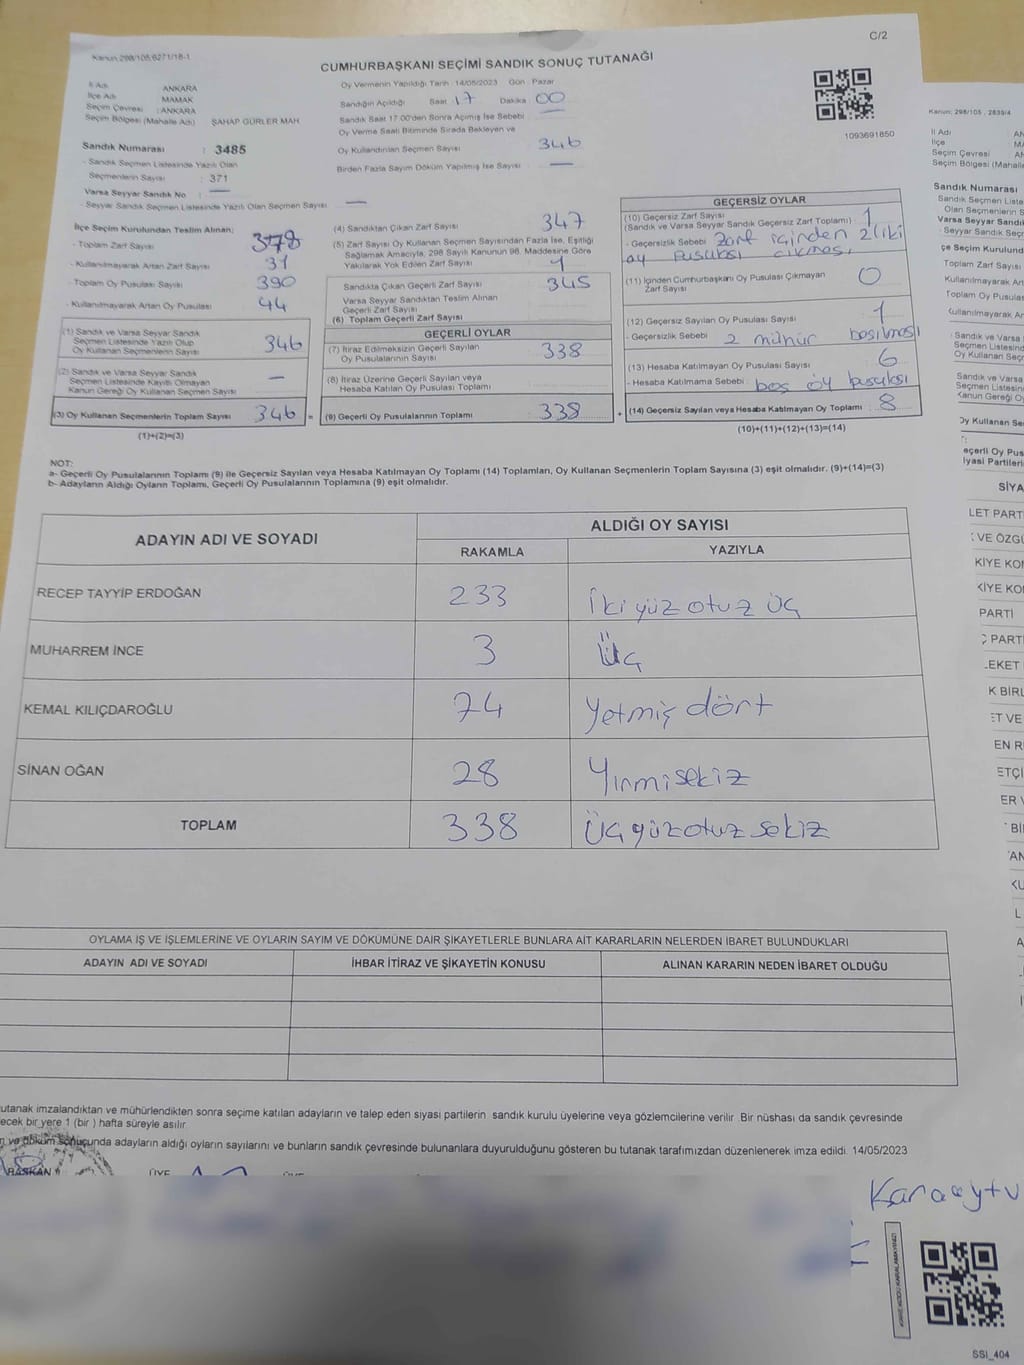 C/2
Kanun 298/105,6271/18-1
CUMHURBAŞKANI SEÇİMİ SANDIK SONUÇ TUTANAĞI
İl Adı ANKARA
İlçe Adı MAMAK
Seçim Çevresi : ANKARA
Seçim Bölgesi (Mahalle Adı) ŞAHAP GÜRLER MAH
Sandık Numarası : 3485
- Sandık Seçmen Listesinde Yazılı Olan
Seçmenlerin Sayısı : 371
Varsa Seyyar Sandık No : —
- Seyyar Sandık Seçmen Listesinde Yazılı Olan Seçmen Sayısı —
Oy Vermenin Yapıldığı Tarih : 14/05/2023 Gün : Pazar
Sandığın Açıldığı Saat 17 Dakika 00
Sandık Saat 17:00'den Sonra Açılmış İse Sebebi —
Oy Verme Saati Bitiminde Sırada Bekleyen ve
Oy Kullandırılan Seçmen Sayısı 346
Birden Fazla Sayım Döküm Yapılmış İse Sayısı —
1093691850
İlçe Seçim Kurulundan Teslim Alınan;
- Toplam Zarf Sayısı
- Kullanılmayarak Artan Zarf Sayısı 31
- Toplam Oy Pusulası Sayısı 390
- Kullanılmayarak Artan Oy Pusulası 44
(1) Sandık ve Varsa Seyyar Sandık
Seçmen Listesinde Yazılı Olup
Oy Kullanan Seçmenlerin Sayısı 346
(2) Sandık ve Varsa Seyyar Sandık
Seçmen Listesinde Kayıtlı Olmayan
Kanun Gereği Oy Kullanan Seçmen Sayısı —
(3) Oy Kullanan Seçmenlerin Toplam Sayısı 346 =
(1)+(2)=(3)
(4) Sandıktan Çıkan Zarf Sayısı 347
(5) Zarf Sayısı Oy Kullanan Seçmen Sayısından Fazla İse, Eşitliği
Sağlamak Amacıyla, 298 Sayılı Kanunun 98. Maddesine Göre
Yakılarak Yok Edilen Zarf Sayısı 1
Sandıkta Çıkan Geçerli Zarf Sayısı 345
Varsa Seyyar Sandıktan Teslim Alınan
Geçerli Zarf Sayısı
(6) Toplam Geçerli Zarf Sayısı
GEÇERLİ OYLAR
(7) İtiraz Edilmeksizin Geçerli Sayılan
Oy Pusulalarının Sayısı 338
(8) İtiraz Üzerine Geçerli Sayılan veya
Hesaba Katılan Oy Pusulası Toplamı
(9) Geçerli Oy Pusulalarının Toplamı 338 +
GEÇERSİZ OYLAR
(10) Geçersiz Zarf Sayısı
(Sandık ve Varsa Seyyar Sandık Geçersiz Zarf Toplamı) 1
- Geçersizlik Sebebi Zarf içinden 2
oy pusulası çıkması
(11) İçinden Cumhurbaşkanı Oy Pusulası Çıkmayan
Zarf Sayısı 0
(12) Geçersiz Sayılan Oy Pusulası Sayısı 1
- Geçersizlik Sebebi 2 mühür basılması
(13) Hesaba Katılmayan Oy Pusulası Sayısı 6
- Hesaba Katılmama Sebebi : boş oy pusulası
(14) Geçersiz Sayılan veya Hesaba Katılmayan Oy Toplamı 8
(10)+(11)+(12)+(13)=(14)
NOT:
a- Geçerli Oy Pusulalarının Toplamı (9) ile Geçersiz Sayılan veya Hesaba Katılmayan Oy Toplamı (14) Toplamları, Oy Kullanan Seçmenlerin Toplam Sayısına (3) eşit olmalıdır. (9)+(14)=(3)
b- Adayların Aldığı Oyların Toplamı, Geçerli Oy Pusulalarının Toplamına (9) eşit olmalıdır.
ADAYIN ADI VE SOYADI ALDIĞI OY SAYISI
RAKAMLA YAZIYLA
RECEP TAYYİP ERDOĞAN 233 İki yüz otuz üç
MUHARREM İNCE 3 Üç
KEMAL KILIÇDAROĞLU 74 yetmiş dört
SİNAN OĞAN 28 Yirmi sekiz
TOPLAM 338 Üç yüz otuz sekiz
OYLAMA İŞ VE İŞLEMLERİNE VE OYLARIN SAYIM VE DÖKÜMÜNE DAİR ŞİKAYETLERLE BUNLARA AİT KARARLARIN NELERDEN İBARET BULUNDUKLARI
ADAYIN ADI VE SOYADI İHBAR İTİRAZ VE ŞİKAYETİN KONUSU ALINAN KARARIN NEDEN İBARET OLDUĞU
utanak imzalandıktan ve mühürlendikten sonra seçime katılan adayların ve talep eden siyasi partilerin sandık kurulu üyelerine veya gözlemcilerine verilir .Bir nüshası da sandık çevresinde
ecek bir yere 1 (bir ) hafta süreyle asılır.
n ve döküm sonucunda adayların aldığı oyların sayılarını ve bunların sandık çevresinde bulunanlara duyurulduğunu gösteren bu tutanak tarafımızdan düzenlenerek imza edildi. 14/05/2023
BAŞKAN ÜYE
SSI_404
Kanun: 298/105 , 2839/4
İl Adı
İlçe
Seçim Çevresi
Seçim Bölgesi (Mahalle
Sandık Numarası
Sandık Seçmen Liste
Olan Seçmenlerin S
Varsa Seyyar Sandı
- Seyyar Sandık Seç
çe Seçim Kurulund
Toplam Zarf Sayısı
Kullanılmayarak Artan
Toplam Oy Pusulası
ullanılmayarak Arta
Sandık ve Varsa S
Seçmen Listesind
Oy Kullanan Seçm
Sandık ve Varsa
Seçmen Listesin
Kanun Gereği O
Oy Kullanan Se
eçerli Oy Pus
iyasi Partileri
SİYA
LET PART
VE ÖZG
KİYE KO
PARTİ
PART
EKET
K BİRL
ET VE
EN R
ETÇİ
ER